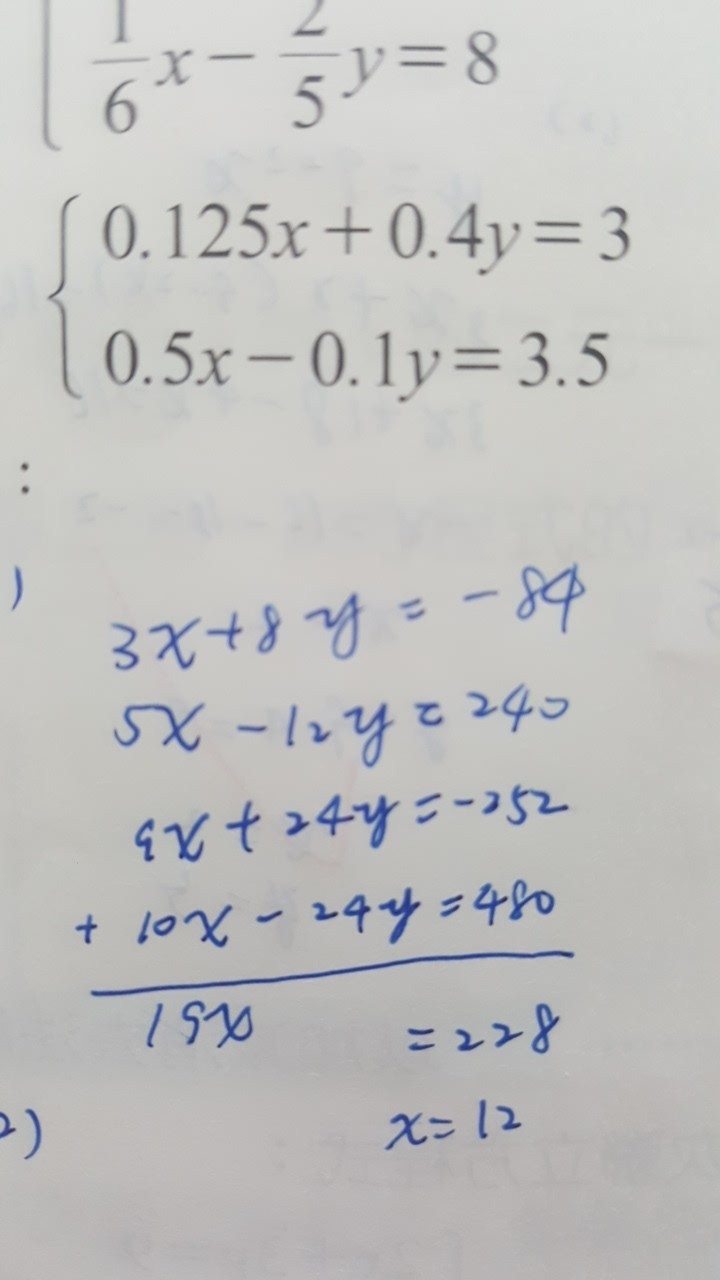 1/6 x − 2/5 y = 8
0.125x + 0.4y = 3
0.5x − 0.1y = 3.5
:
)
3x + 8y = -84
5x - 12y = 240
9x + 24y = -252
+ 10x - 24y = 480
19x = 228
x = 12
2)